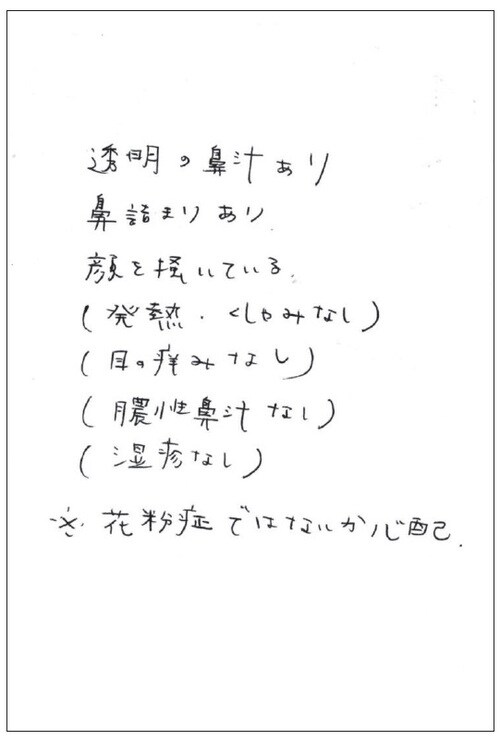 透明の鼻汁あり
鼻詰まりあり.
顔を掻いている.
(発熱.くしゃみなし)
(目の痒みなし)
(膿性鼻汁なし)
(湿疹なし)
※.花粉症ではないか心配.